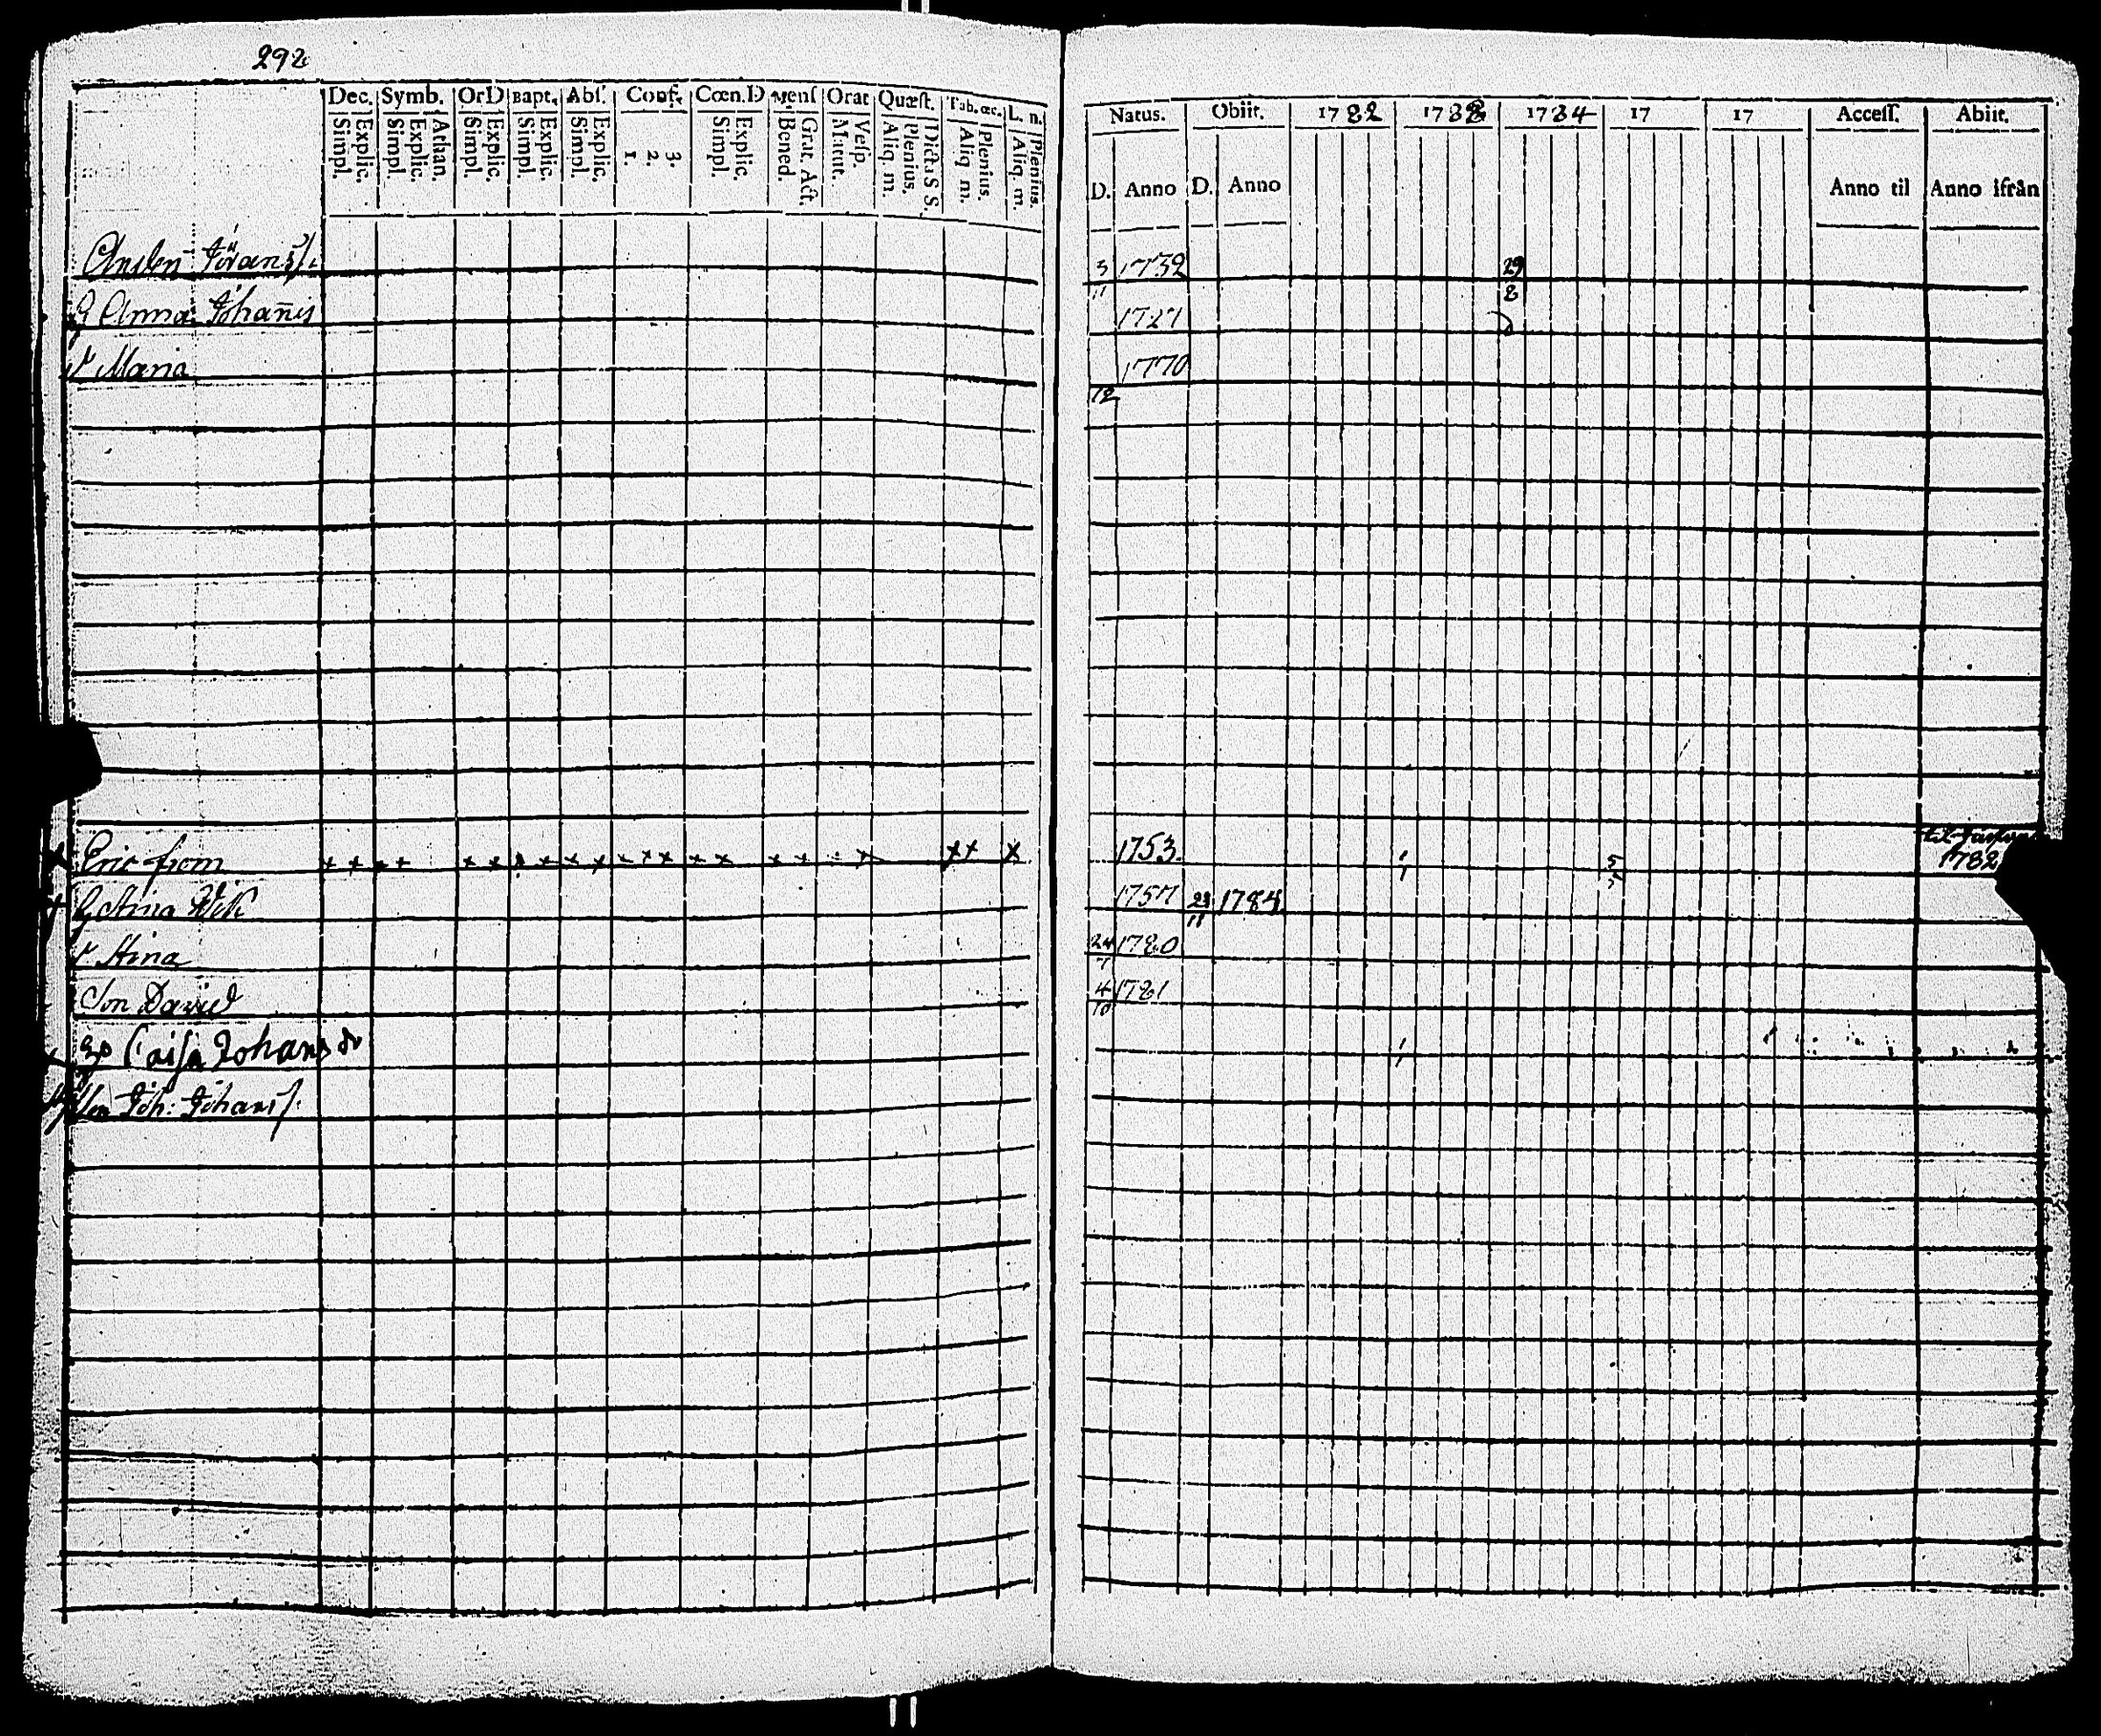 292
Dec. Symb. OrD Bapt. Abs. Conf. Cœn.D Mens Orat Quæst. Tab. œc. L. n.
Simpl. Explic. Simpl. Explic. Athan. Simpl. Explic. Simpl. Explic. Simpl. Explic. 1. 2. 3. Simpl. Explic. Bened. Grat. Act. Matut. Vesp. Aliq. m. Plenius. Dicta S S. Aliq. m. Plenius. Aliq. m. Plenius.
Natus. Obiit. 1782 1783 1784 17 17 Access. Abiit.
D. Anno D. Anno Anno til Anno ifrån
Jöranss. 3/11 1732 29/8
Anna Johannis 1727
Maria 12 1770
Eric from 1753 1/1 5/5 1782
Stina Wik 1757 23/11 1784
Stina 24/7 1780
Son David 4/10 1781
Caisa Johans dr 1/1
Joh: Johans s.